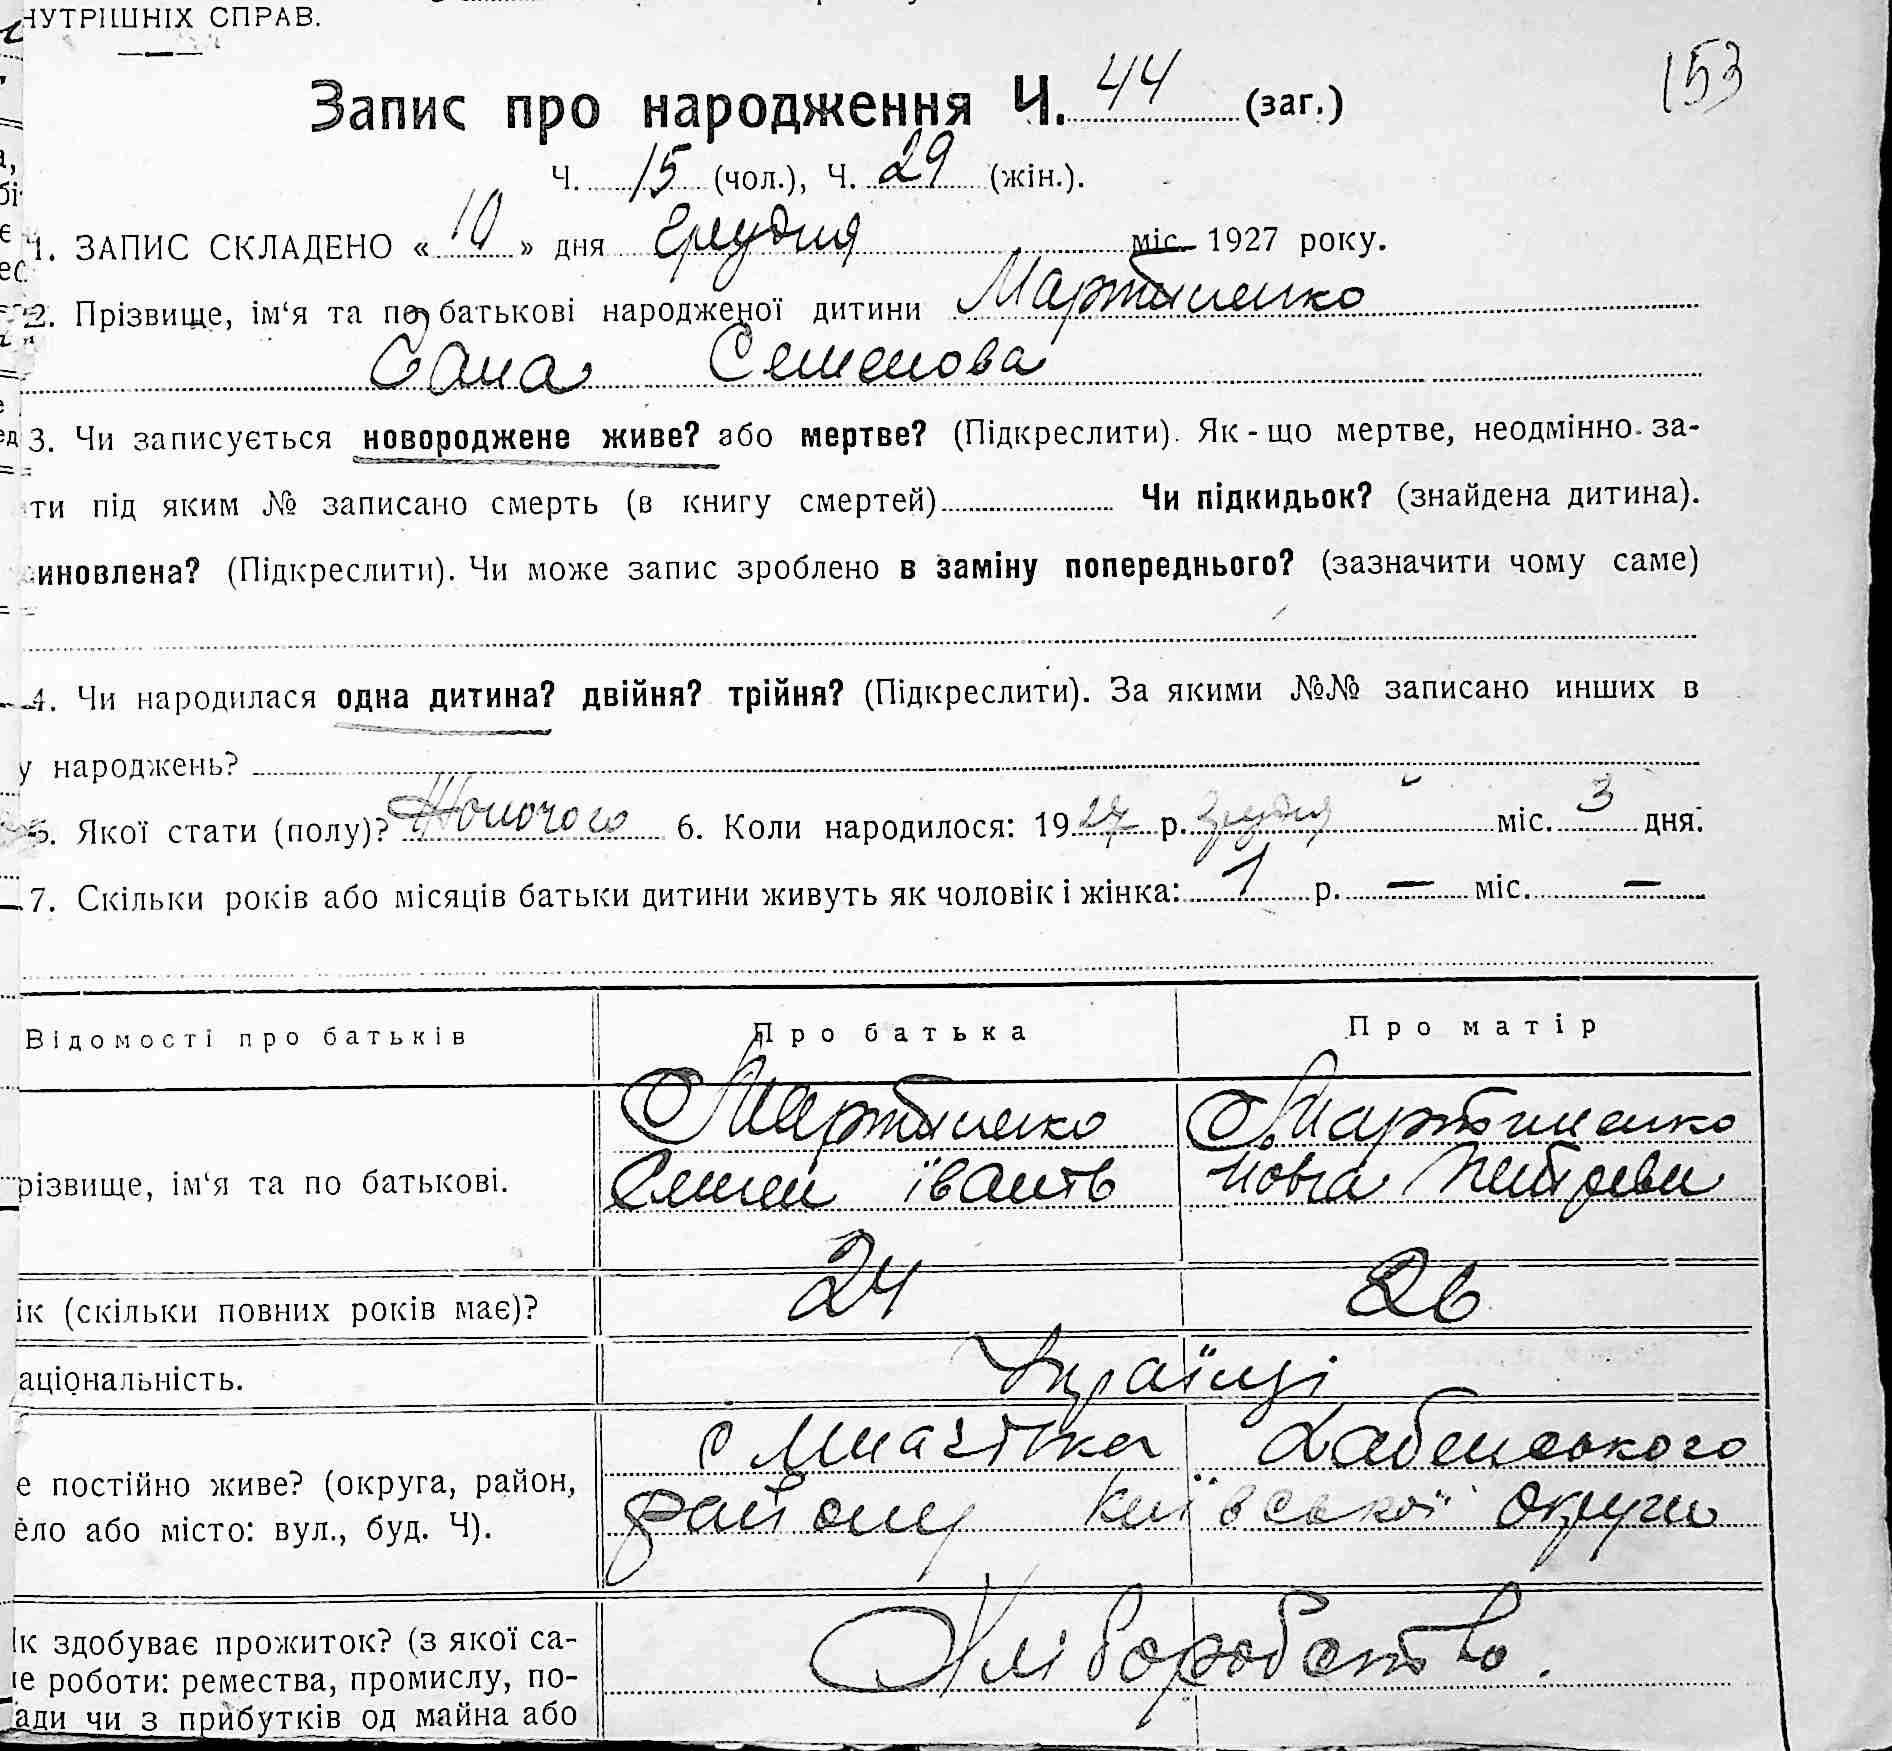 НУТРІШНІХ СПРАВ.
153
Запис про народження Ч. 44 (заг.)
Ч. 15 (чол.), Ч. 29 (жін.).
1. ЗАПИС СКЛАДЕНО « 10 » дня Грудня міс. 1927 року.
2. Прізвище, ім‘я та по батькові народженої дитини Мартиненко
Семенова
3. Чи записується новороджене живе? або мертве? (Підкреслити). Як-що мертве, неодмінно за-
ти під яким № записано смерть (в книгу смертей) Чи підкидьок? (знайдена дитина).
иновлена? (Підкреслити). Чи може запис зроблено в заміну попереднього? (зазначити чому саме)
4. Чи народилася одна дитина? двійня? трійня? (Підкреслити). За якими №№ записано инших в
у народжень?
5. Якої стати (полу)? Жоночого 6. Коли народилося: 1927 р. грудня міс. 3 дня.
7. Скільки років або місяців батьки дитини живуть як чоловік і жінка: 1 р. — міс. —
Відомості про батьків Про батька Про матір
Мартиненко Мартиненко
різвище, ім‘я та по батькові. Семен
24 26
ік (скільки повних років має)?
аціональність. Українці
с Мнагітка Хабенського
е постійно живе? (округа, район,
району Київської округи
ело або місто: вул., буд. Ч).
Хліборобство.
Ік здобуває прожиток? (з якої са-
е роботи: ремества, промислу, по-
ади чи з прибутків од майна або